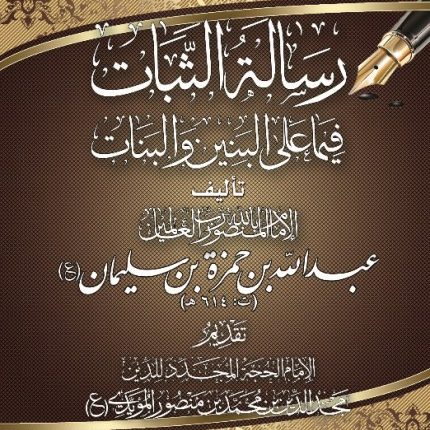 رسالة الثبات
فيما على البنين والبنات
تأليف
الإمام المنصور بالله رب العالمين
عبد الله بن حمزة بن سليمان (ع)
(ت: ٦١٤ هـ)
تقديم
الإمام الحجة المجدد للدين
مجد الدين بن محمد بن منصور المؤيدي (ع)